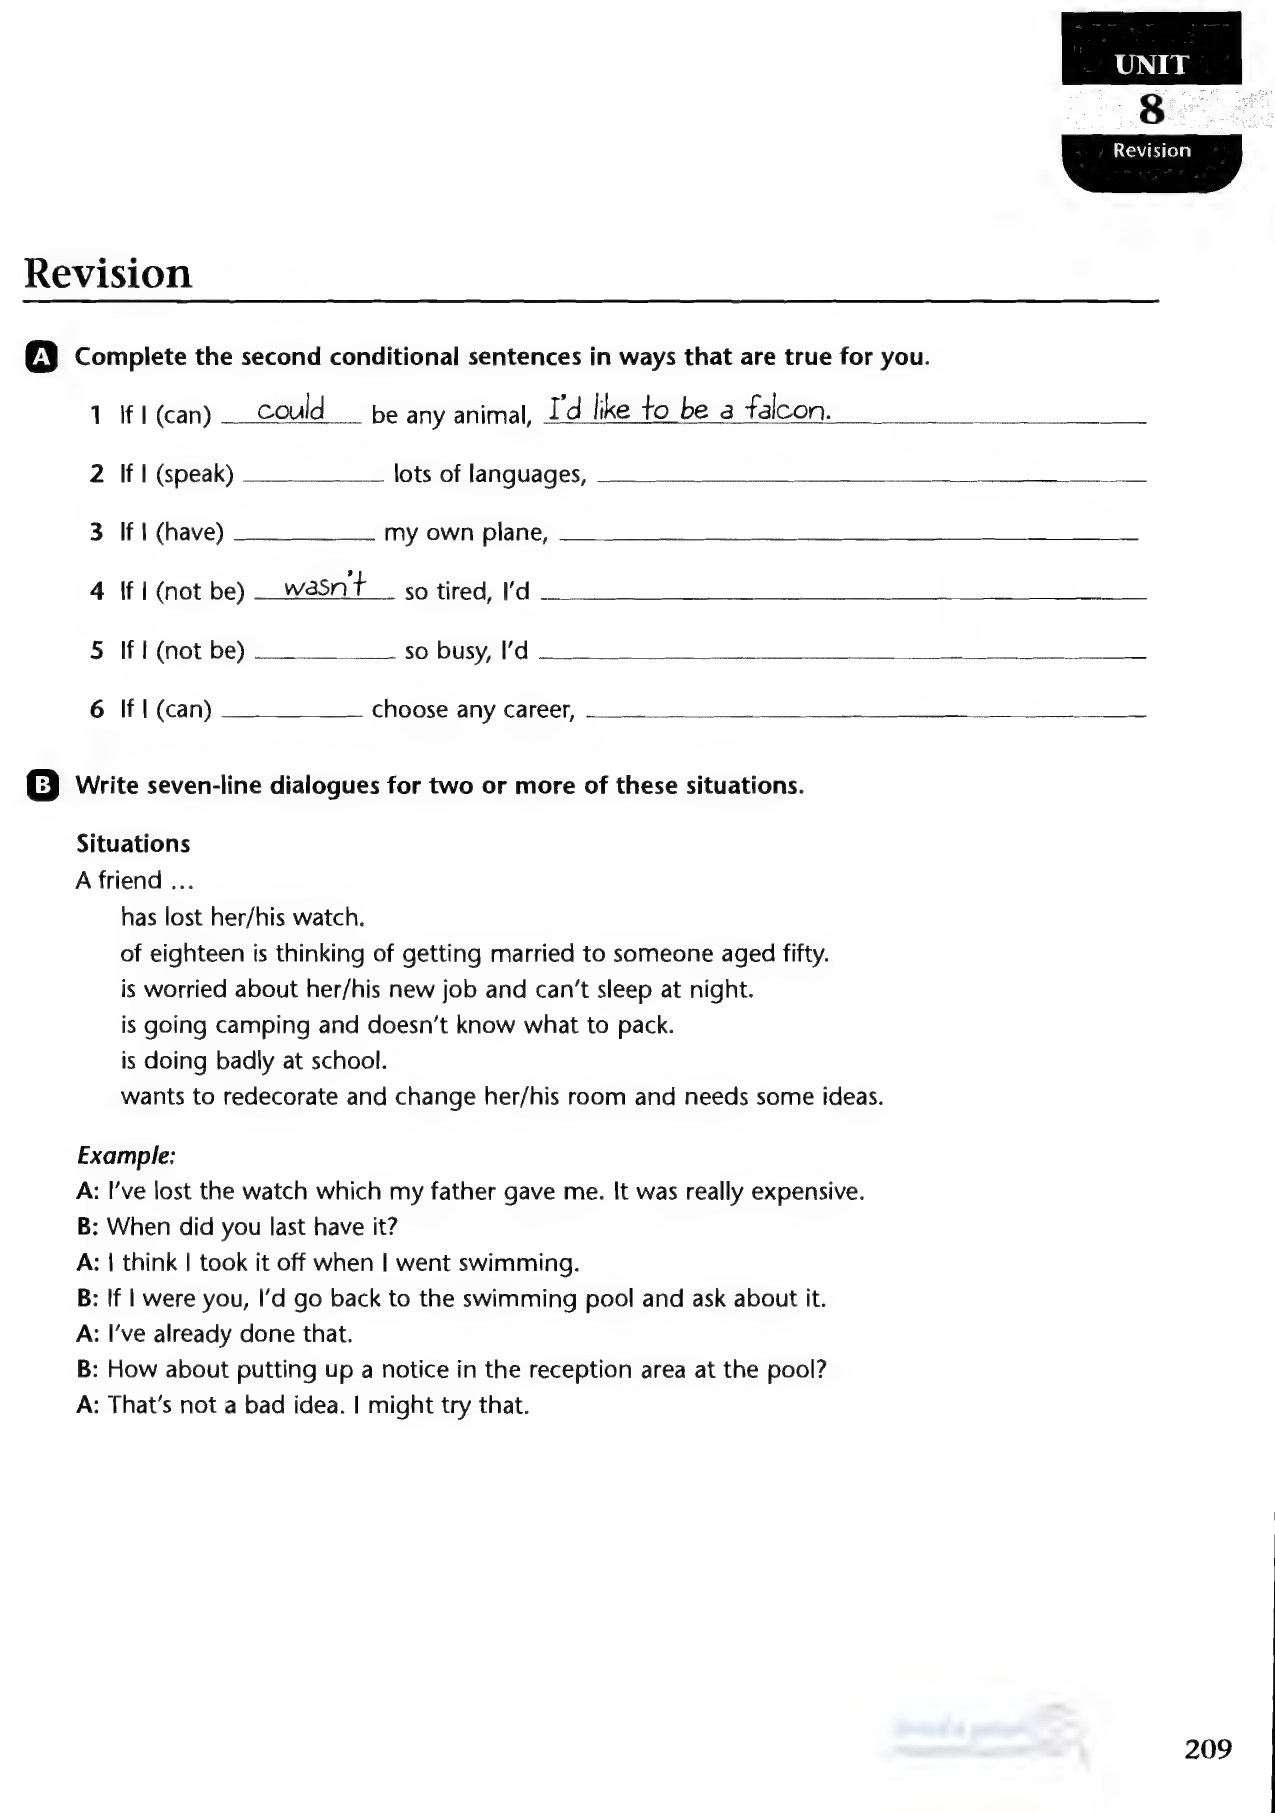 UNIT
8
Revision
Revision
A Complete the second conditional sentences in ways that are true for you.
1 If I (can) could be any animal, I'd like to be a falcon.
2 If I (speak) ____________ lots of languages, ____________
3 If I (have) ____________ my own plane, ____________
4 If I (not be) wasn't so tired, I'd ____________
5 If I (not be) ____________ so busy, I'd ____________
6 If I (can) ____________ choose any career, ____________
B Write seven-line dialogues for two or more of these situations.
Situations
A friend ...
has lost her/his watch.
of eighteen is thinking of getting married to someone aged fifty.
is worried about her/his new job and can't sleep at night.
is going camping and doesn't know what to pack.
is doing badly at school.
wants to redecorate and change her/his room and needs some ideas.
Example:
A: I've lost the watch which my father gave me. It was really expensive.
B: When did you last have it?
A: I think I took it off when I went swimming.
B: If I were you, I'd go back to the swimming pool and ask about it.
A: I've already done that.
B: How about putting up a notice in the reception area at the pool?
A: That's not a bad idea. I might try that.
209